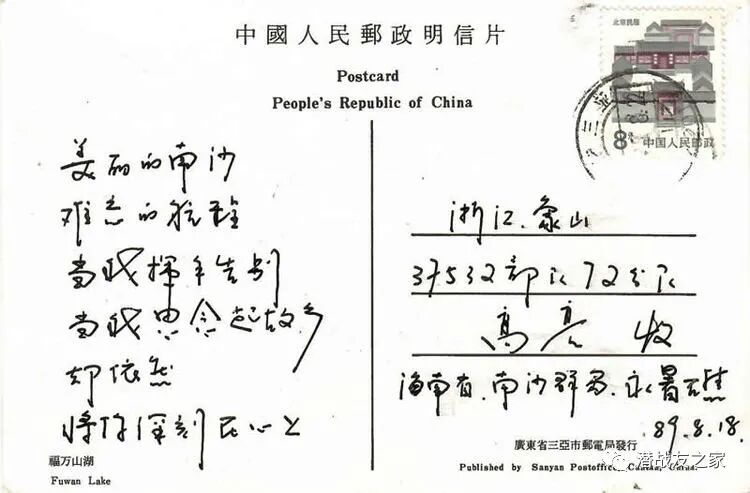 中國人民郵政明信片
Postcard
People's Republic of China
北京民居
8
中国人民邮政
三亚
美丽的南沙
难忘的航程
当我挥手告别
当我思念起故乡
却依然
将你深刻在心上
浙江.象山
37532部队72分队
高亮 收
海南省.南沙群岛.永暑礁
89.8.18.
福万山湖
Fuwan Lake
廣東省三亞市郵電局發行
Published by Sanyan Postoffice, Canton, China.
潜战友之家